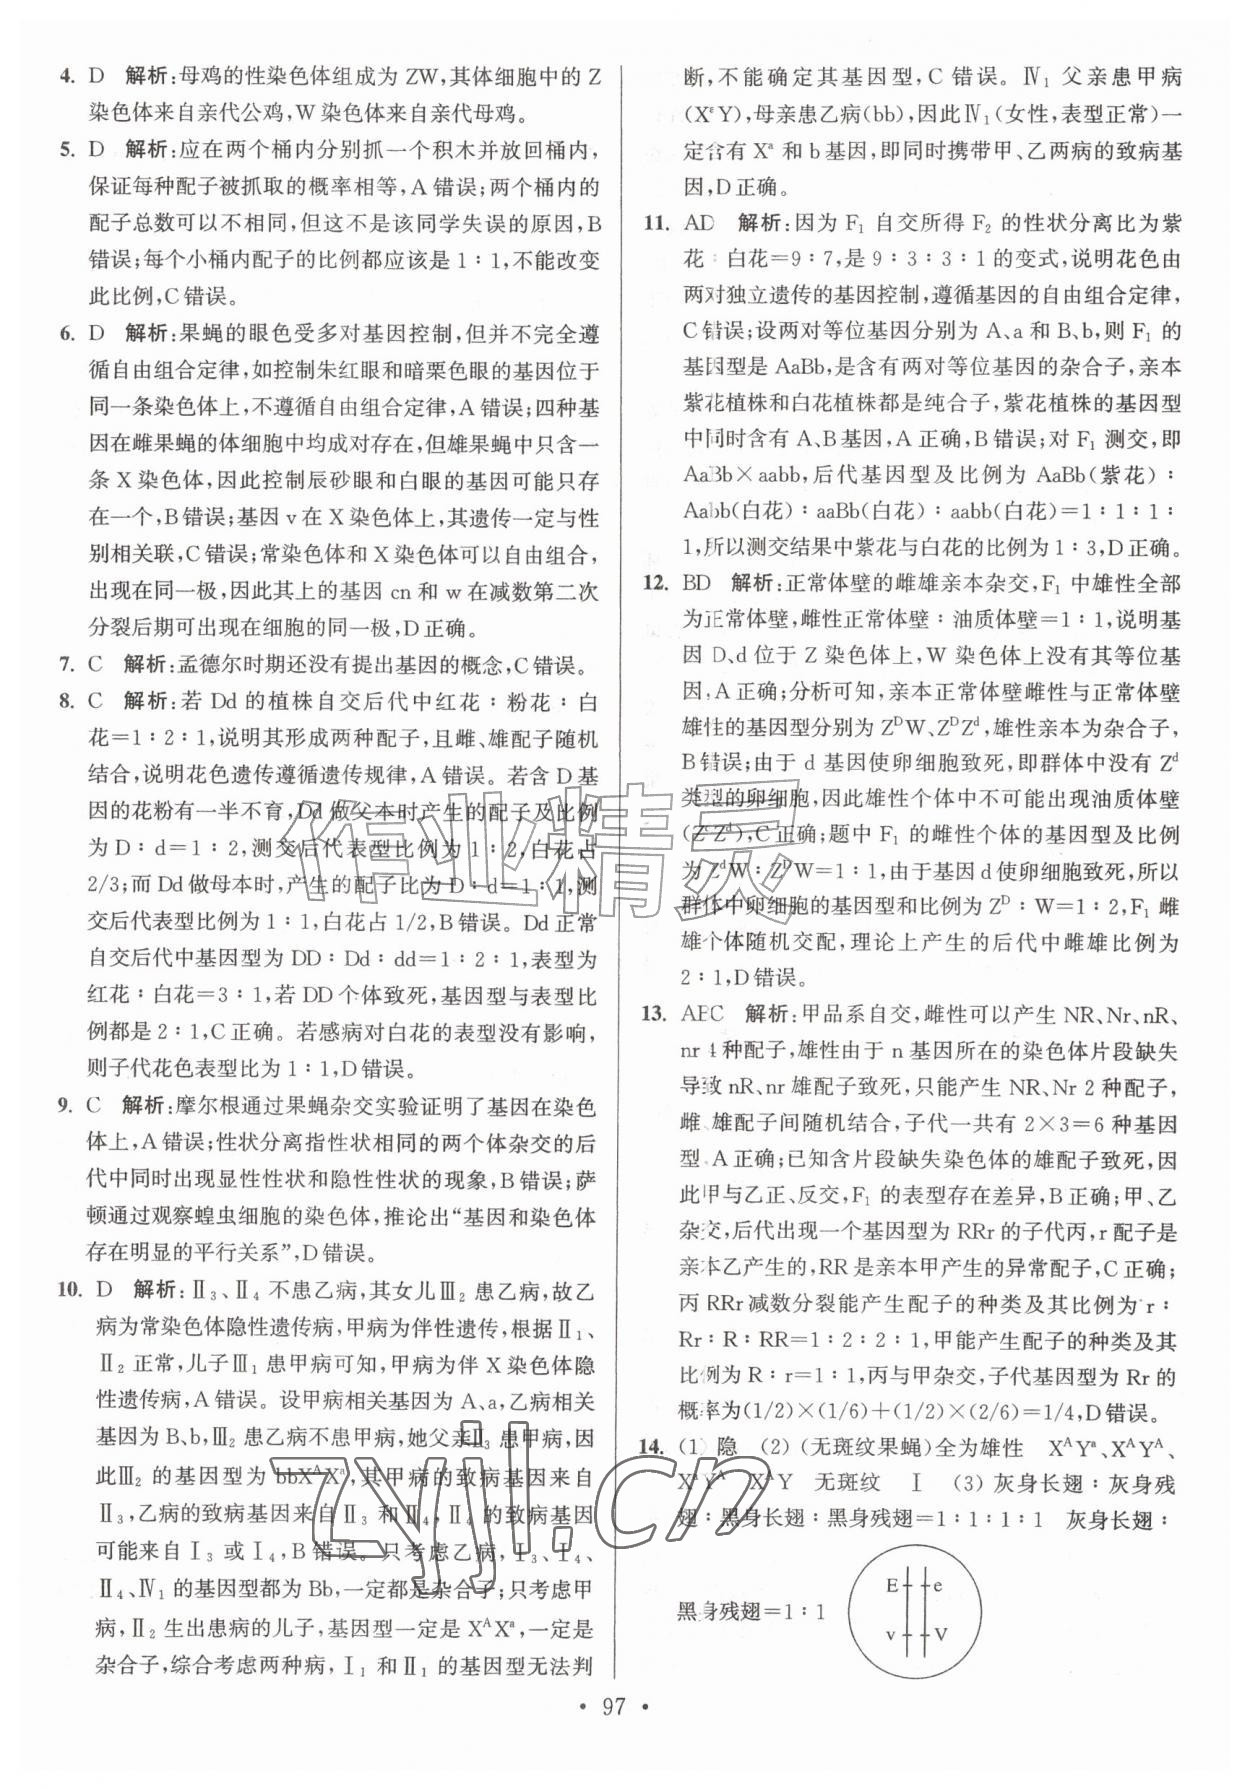 4. D 解析:母鸡的性染色体组成为 ZW,其体细胞中的 Z
染色体来自亲代公鸡,W 染色体来自亲代母鸡。
5. D 解析:应在两个桶内分别抓一个积木并放回桶内,
保证每种配子被抓取的概率相等,A 错误;两个桶内的
配子总数可以不相同,但这不是该同学失误的原因,B
错误;每个小桶内配子的比例都应该是 1∶1,不能改变
此比例,C 错误。
6. D 解析:果蝇的眼色受多对基因控制,但并不完全遵
循自由组合定律,如控制朱红眼和暗栗色眼的基因位于
同一条染色体上,不遵循自由组合定律,A 错误;四种基
因在雌果蝇的体细胞中均成对存在,但雄果蝇中只含一
条 X 染色体,因此控制辰砂眼和白眼的基因可能只存
在一个,B 错误;基因 v 在 X 染色体上,其遗传一定与性
别相关联,C 错误;常染色体和 X 染色体可以自由组合,
都出现在同一极,因此其上的基因 cn 和 w 在减数第二次
分裂后期可出现在细胞的同一极,D 正确。
7. C 解析:孟德尔时期还没有提出基因的概念,C 错误。
8. C 解析:若 Dd 的植株自交后代中红花∶粉花∶白
花=1∶2∶1,说明其形成两种配子,且雌、雄配子随机
结合,说明花色遗传遵循遗传规律,A 错误。若含 D 基
因的花粉有一半不育,Dd 做父本时产生的配子及比例
为 D∶d=1∶2,测交后代表型比例为 1∶2,白花占
2/3;而 Dd 做母本时,产生的配子比例为 D∶d=1∶1,测
交后代表型比例为 1∶1,白花占 1/2,B 错误。Dd 正常
自交后代中基因型为 DD∶Dd∶dd=1∶2∶1,表型为
红花∶白花=3∶1,若 DD 个体致死,基因型与表型比
例都是 2∶1,C 正确。若感病对白花的表型没有影响,
则子代花色表型比为 1∶1,D 错误。
9. C 解析:摩尔根通过果蝇杂交实验证明了基因在染色
体上,A 错误;性状分离指性状相同的两个体杂交的后
代中同时出现显性性状和隐性性状的现象,B 错误;萨
顿通过观察蝗虫细胞的染色体,推论出“基因和染色体
存在明显的平行关系”,D 错误。
10. D 解析:Ⅱ₃、Ⅱ₄ 不患乙病,其女儿Ⅲ₂ 患乙病,故乙
病为常染色体隐性遗传病,甲病为伴性遗传,根据Ⅱ₁、
Ⅱ₂ 正常,儿子Ⅲ₁ 患甲病可知,甲病为伴 X 染色体隐
性遗传病,A 错误。设甲病相关基因为 A、a,乙病相关
基因为 B、b,Ⅲ₂ 患乙病不患甲病,她父亲Ⅱ₃ 患甲病,因
此Ⅲ₂ 的基因型为 bbXᴬXᵃ,其甲病的致病基因来自
Ⅱ₃,乙病的致病基因来自Ⅱ₃ 和Ⅱ₄,Ⅱ₄ 的乙病致病基因
可能来自Ⅰ₃ 或Ⅰ₄,B 错误。只考虑乙病,Ⅰ₃、Ⅰ₄、
Ⅱ₄、Ⅳ₁ 的基因型都为 Bb,一定都是杂合子;只考虑甲
病,Ⅱ₂ 生出患病的儿子,基因型一定是 XᴬXᵃ,一定是
杂合子,综合考虑两种病,Ⅰ₁ 和Ⅱ₁ 的基因型无法判
断,不能确定其基因型,C 错误。Ⅳ₁ 父亲患甲病
(XᵃY),母亲患乙病(bb),因此Ⅳ₁(女性,表型正常)一
定含有 Xᵃ 和 b 基因,即同时携带甲、乙两病的致病基
因,D 正确。
11. AD 解析:因为 F₁ 自交所得 F₂ 的性状分离比为紫
花∶白花=9∶7,是 9∶3∶3∶1 的变式,说明花色由
两对独立遗传的基因控制,遵循基因的自由组合定律,
C 错误;设两对等位基因分别为 A、a 和 B、b,则 F₁ 的
基因型是 AaBb,是含有两对等位基因的杂合子,亲本
紫花植株和白花植株都是纯合子,紫花植株的基因型
中同时含有 A、B 基因,A 正确,B 错误;对 F₁ 测交,即
AaBb×aabb,后代基因型及比例为 AaBb(紫花)∶
Aabb(白花)∶aaBb(白花)∶aabb(白花)=1∶1∶1∶
1,所以测交结果中紫花与白花的比例为 1∶3,D 正确。
12. BD 解析:正常体壁的雌雄亲本杂交,F₁ 中雄性全部
为正常体壁,雌性正常体壁∶油质体壁=1∶1,说明基
因 D、d 位于 Z 染色体上,W 染色体上没有其等位基
因,A 正确;分析可知,亲本正常体壁雌性与正常体壁
雄性的基因型分别为 ZᴰW、ZᴰZᵈ,雄性亲本为杂合子,
B 错误;由于 d 基因使卵细胞致死,即群体中没有 Zᵈ
类型的卵细胞,因此雄性个体中不可能出现油质体壁
(ZᵈZᵈ),C 正确;题中 F₁ 的雌性个体的基因型及比例
为 ZᵈW∶ZᴰW=1∶1,由于基因 d 使卵细胞致死,所以
群体中卵细胞的基因型和比例为 Zᴰ∶W=1∶2,F₁ 雌
雄个体随机交配,理论上产生的后代中雌雄比例为
2∶1,D 错误。
13. ABC 解析:甲品系自交,雌性可以产生 NR、Nr、nR、
nr 4 种配子,雄性由于 n 基因所在的染色体片段缺失
导致 nR、nr 雄配子致死,只能产生 NR、Nr 2 种配子,
雌、雄配子间随机结合,子代一共有 2×3=6 种基因
型,A 正确;已知含片段缺失染色体的雄配子致死,因
此甲与乙正、反交,F₁ 的表型存在差异,B 正确;甲、乙
杂交,后代出现一个基因型为 RRr 的子代丙,r 配子是
亲本乙产生的,RR 是亲本甲产生的异常配子,C 正确;
丙 RRr 减数分裂能产生配子的种类及其比例为 r∶
Rr∶R∶RR=1∶2∶2∶1,甲能产生配子的种类及其
比例为 R∶r=1∶1,丙与甲杂交,子代基因型为 Rr 的
概率为(1/2)×(1/6)+(1/2)×(2/6)=1/4,D 错误。
14. (1) 隐 (2) (无斑纹果蝇)全为雄性 XᴬYᵃ、XᴬYᴬ、
XᵃYᴬ XᴬXᴬY 无斑纹 Ⅰ (3) 灰身长翅∶灰身残
翅∶黑身长翅∶黑身残翅=1∶1∶1∶1 灰身长翅∶
黑身残翅=1∶1
E e
v V
• 97 •
作业精灵
zyjl.cn